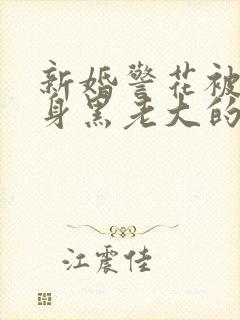 新婚警花被
身黑老大的
江震佳